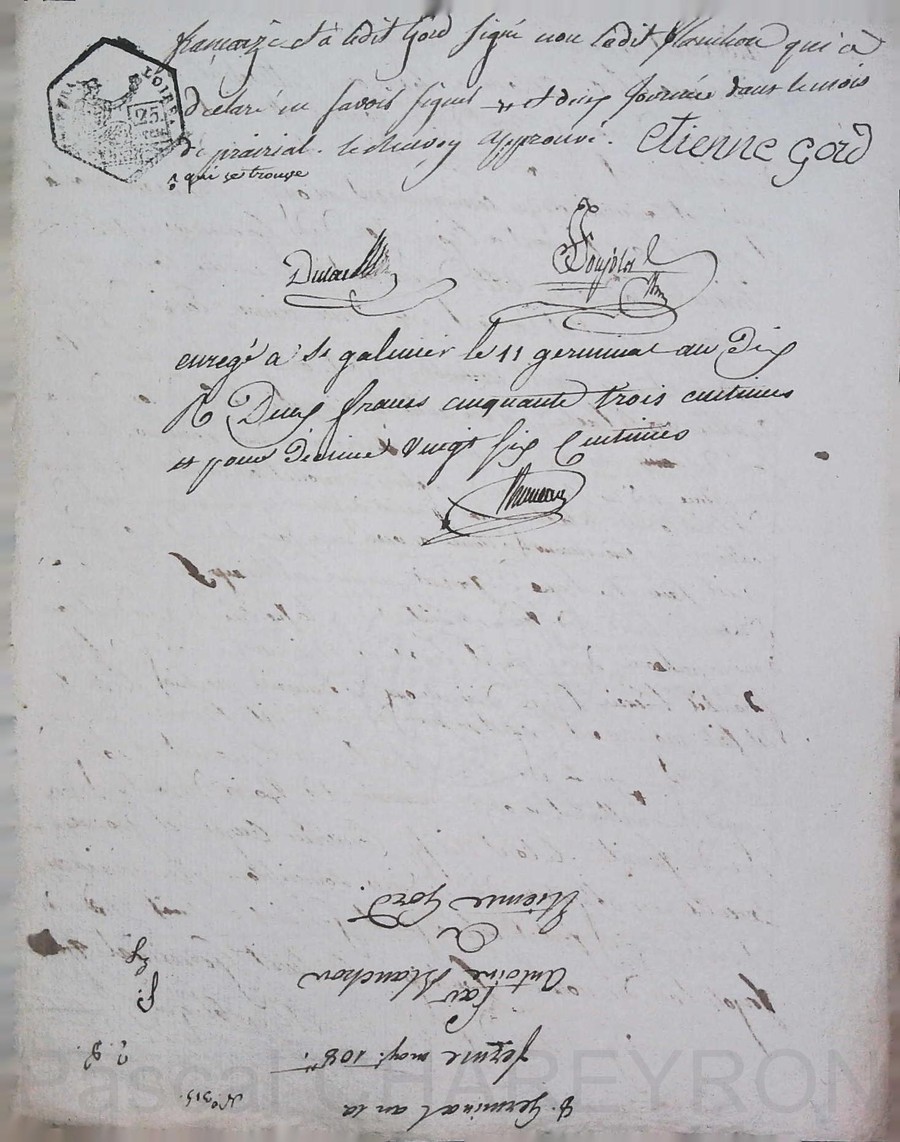 et a ledit Gord signé non ledit Planchon qui a
declaré ne savoir signer et deux journée dans le mois
de prairial. le renvoy approuvé. etienne gord
qui se trouve
enregé a St galmier le 11 germinal an Dix
R Deux francs cinquante trois centimes
et pour décime vingt six Centimes
LOIRE
25
8 Germinal an 10 N° 315.
ferme moy. 108
Par
Antoine Blanchon
a
Etienne Gord
Pascal CHAREYRON